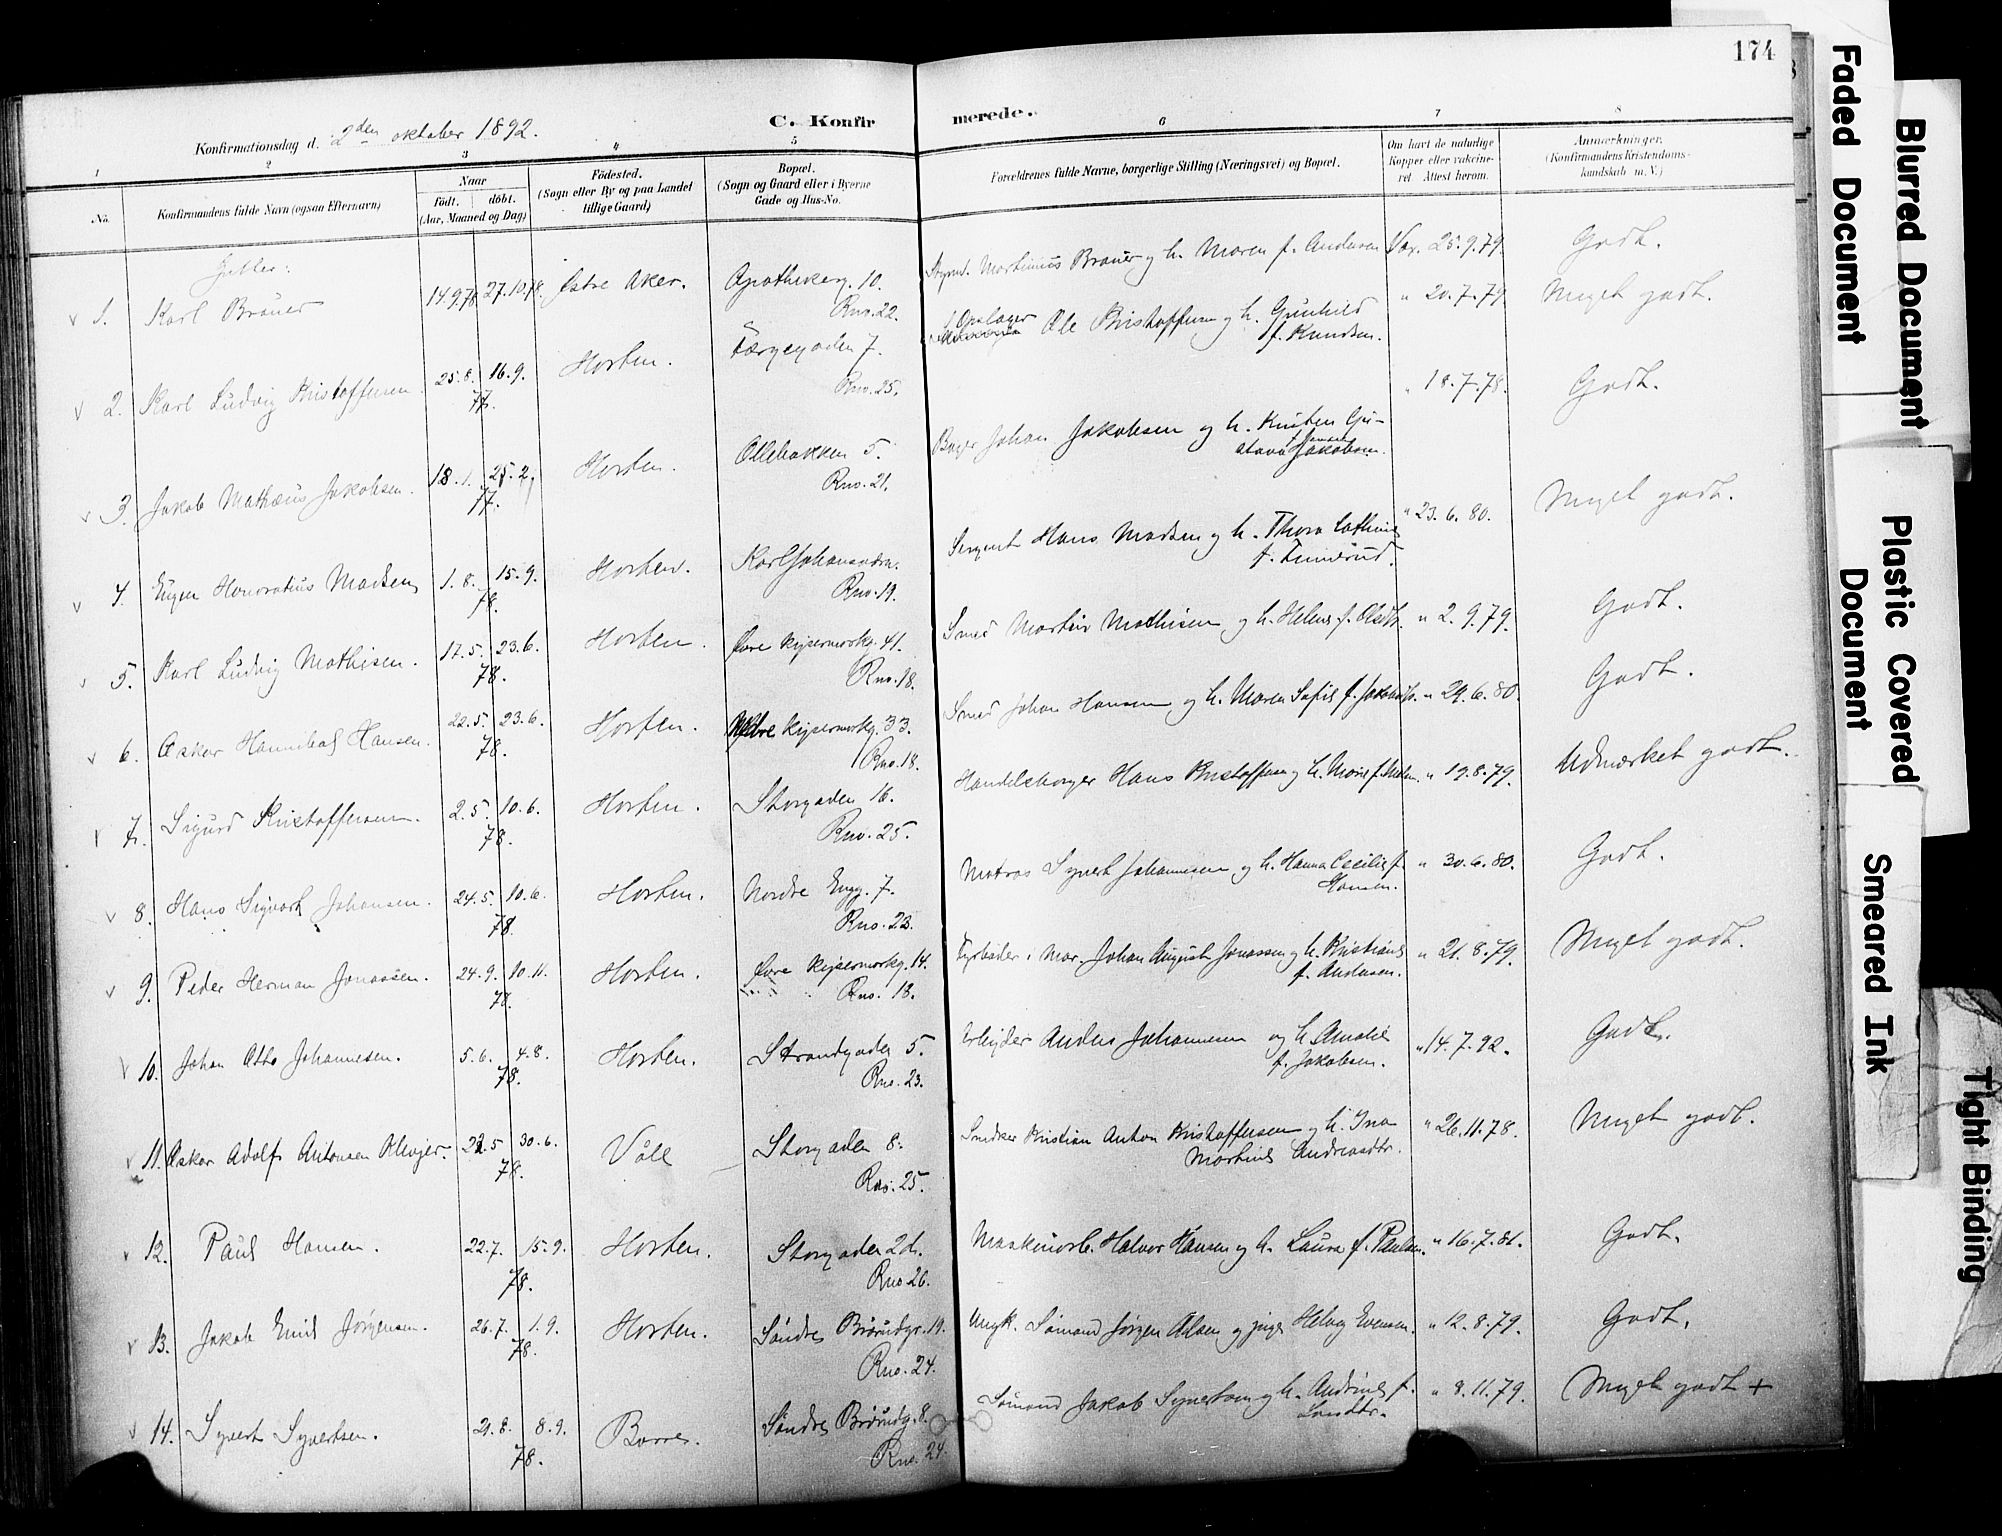 174
Konfirmationsdag d. 2den oktober 1892.
C. Konfirmerede.
1 2 3 4 5 6 7 8
No.
Konfirmandens fulde Navn (ogsaa Efternavn)
Naar
født. døbt.
(Aar, Maaned og Dag)
Fødested.
(Sogn eller By og paa Landet
tillige Gaard)
Bopæl.
(Sogn og Gaard eller i Byerne
Gade og Hus-No.
Forældrenes fulde Navne, borgerlige Stilling (Næringsvei) og Bopæl.
Om havt de naturlige
Kopper eller vaccine-
ret Attest herom.
Anmærkninger.
(Konfirmandens Kristendoms-
kundskab m. V.)
Gutter:
1. Karl Brauer 14.9.78 27.10.78. Østre Aker. Apothekerg. 10. Rno. 22. Styrmd. Martinius Brauer og h. Maren f. Andersen Vax. 25.9.79. Godt.
2. Karl Ludvig Kristoffersen. 25.8. 16.9. 77. Horten. Færgegaden 7. Rno. 25. Opslager Ole Kristoffersen og h. Gunhild f. Knudsen. " 20.7.79. Meget godt.
3. Jakob Mathæus Jakobsen. 18.1. 25.2. 77. Horten. Ollebakken 5. Rno. 21. Bager Johan Jakobsen og h. Kristen Gu- stava f. Jakobsen. " 18.7.78. Godt.
4. Eugen Honoratius Madsen 1.8. 15.9. 78. Horten. Karl Johansvrn. Rno. 19. Sergent Hans Madsen og h. Thora Cathine f. Finnerud. " 23.6.80. Meget godt.
5. Karl Ludvig Mathisen. 17.5. 23.6. 78. Horten. Øvre Kejsermarkg. 41. Rno. 18. Smed Martin Mathisen og h. Helene f. Olsdtr. " 2.9.79. Godt.
6. Oskar Hannibal Hansen. 22.5. 23.6. 78. Horten. Nedre Kejsermarkg. 33. Rno. 18. Smed Johan Hansen og h. Maren Sofie f. Jakobsdtr. " 29.6.80. Godt.
7. Sigurd Kristoffersen. 2.5. 10.6. 78. Horten. Storgaden 16. Rno. 25. Handelsborger Hans Kristoffersen og h. Marie f. " 19.8.79. Udmærket godt.
8. Hans Sigvart Johansen. 24.5. 10.6. 78. Horten. Nordre Engg. 7. Rno. 23. Matros Syvert Johannesen og h. Hanna Cecilie f. Hansen. " 30.6.80. Godt.
9. Peder Herman Jonassen. 24.9. 10.11. 78. Horten. Øvre Kejsermarkg. 14. Rno. 18. Fyrbøder i Mar. Johan August Jonassen og h. Kristiane f. Andersen. " 21.8.79. Meget godt.
10. Johan Otto Johannesen. 5.6. 4.8. 78. Horten. Strandgaden 5. Rno. 23. Arbejder Anders Johannesen og h. Amalie f. Jakobsen. " 14.7.92. Godt.
11. Oskar Adolf Antonsen Klevjer. 22.5 30.6. 78. Våle Storgaden 8. Rno. 25. Snedker Kristian Anton Kristoffersen og h. Ina Martine Andreasdtr. " 26.11.78. Meget godt.
12. Paul Hansen. 22.7. 15.9. 78. Horten. Storgaden 2d. Rno 26. Maskinarb. Halvor Hansen og h. Laura f. Paulsen. " 16.7.81. Godt.
13. Jakob Emil Jørgensen. 26.7. 1.9. 78. Horten. Søndre Brårudgr. 19. Rno. 24. Ungk. Sømand Jørgen Olsen og pige Helvig Evensen. " 12.8.79. Godt.
14. Syvert Syvertsen. 21.8. 8.9. 78. Borre. Søndre Brårudg. 8. Rno. 24. Sømand Jakob Syvertsen og h. Andrine f. Larsdtr. " 8.11.79. Meget godt +
Faded Document
Blurred Document
Plastic Covered
Document
Smeared Ink
Tight Binding